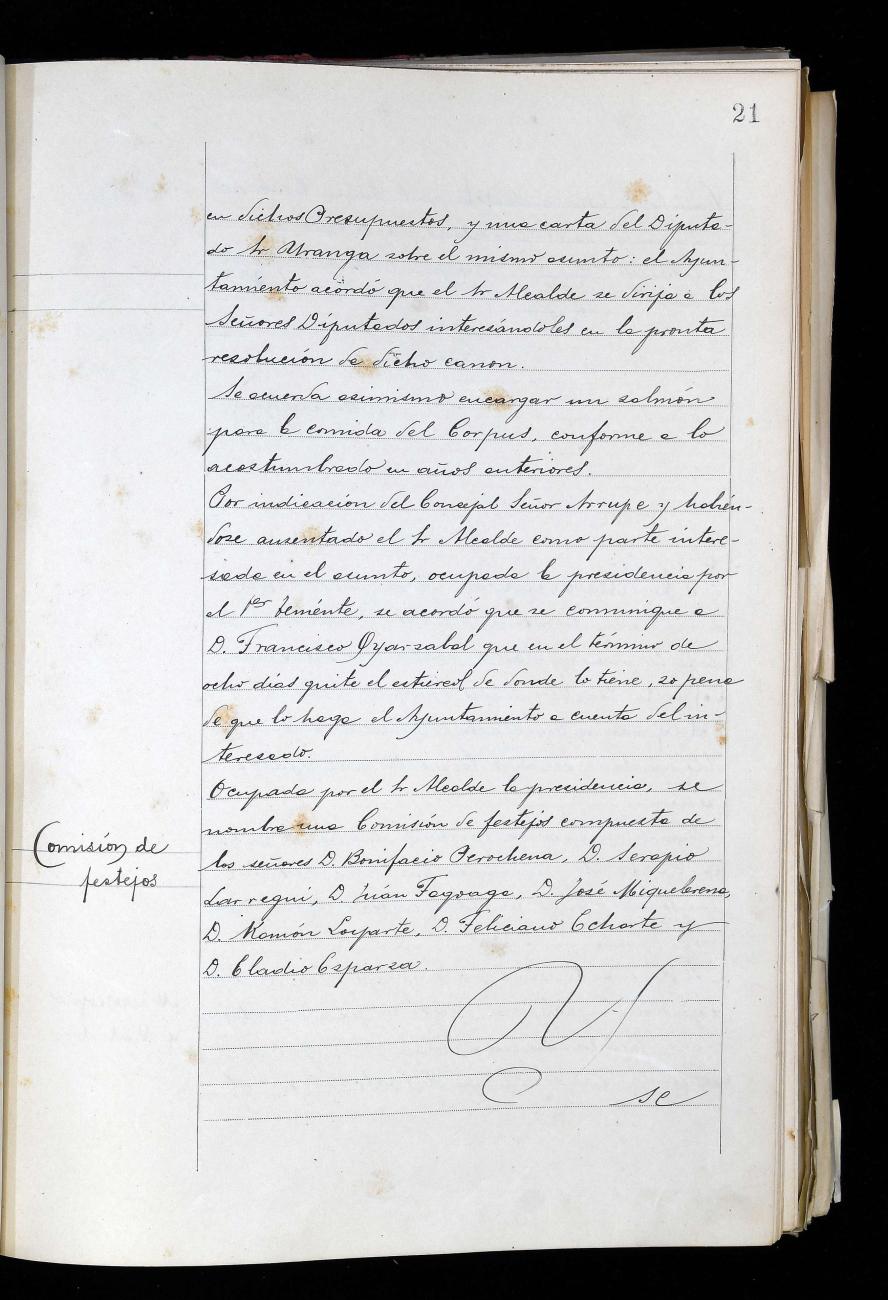 21
en dichos Presupuestos, y una carta del Diputa-
do Sr Uranga sobre el mismo asunto: el Ayun-
tamiento acordó que el Sr Alcalde se dirija a los
Señores Diputados interesándoles en la pronta
resolución de dicho canon.
Se acuerda asimismo encargar un salmón
para la comida del Corpus, conforme a lo
acostumbrado en años anteriores.
Por indicación del Concejal Señor Arrupe y habién-
dose ausentado el Sr Alcalde como parte intere-
sada en el asunto, ocupada la presidencia por
el 1er teniente, se acordó que se comunique a
D. Francisco Oyarzabal que en el término de
ocho días quite el estiércol de donde lo tiene, so pena
de que lo haga el Ayuntamiento a cuenta del in-
teresado.
Ocupada por el Sr Alcalde la presidencia, se
nombra una Comisión de festejos compuesta de
Comisión de
festejos
los señores D. Bonifacio Perochena, D. Serapio
Larregui, D. Juan Fagoaga, D. José Miquelerena,
D. Ramón Loyarte, D. Feliciano Echarte y
D. Cladio Esparza.
se